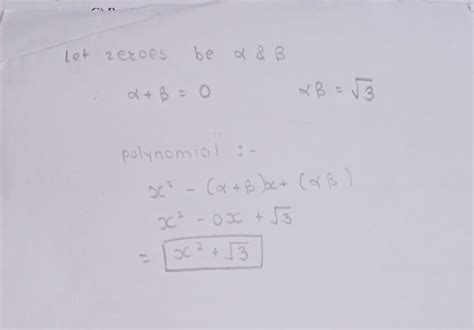 Let zeroes be α & β
α + β = 0 αβ = √3
polynomial :-
x² - (α+β)x + (αβ)
x² - 0x + √3
= x² + √3